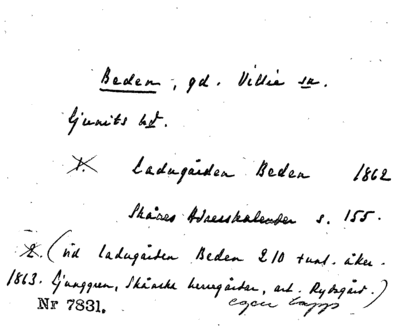 Beden, gd. Villie sn.
Ljunits hd.
1. Ladugården Beden 1862
Skånes Adresskalender s. 155.
2. (vid ladugården Beden 210 tunl. åker.
1863. Ljunggren, Skånska herregårdar, art. Rydsgård.)
Nr 7831.